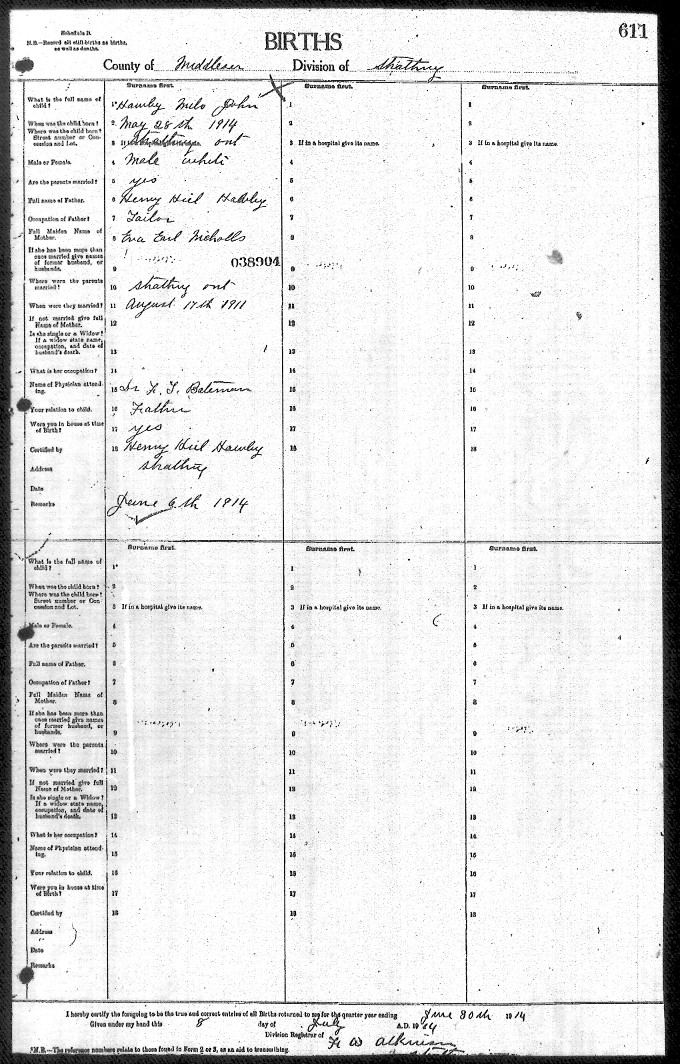 Schedule B.
N.B.—Record all still births as births,
as well as deaths.
BIRTHS
611
County of Middlesex Division of Strathroy
Surname first. Surname first. Surname first.
What is the full name of child? 1 Hawley Milo John 1 1
When was the child born? 2 May 28th 1914 2 2
Where was the child born? Street number or Concession and Lot. 3 If in a hospital give its name. Strathroy ont 3 If in a hospital give its name. 3 If in a hospital give its name.
Male or Female. 4 Male white 4 4
Are the parents married? 5 yes 5 5
Full name of Father. 6 Henry Hiel Hawley 6 6
Occupation of Father? 7 Tailor 7 7
Full Maiden Name of Mother. 8 Eva Earl Nicholls 8 8
If she has been more than once married give names of former husband, or husbands. 9 038904 9 9
Where were the parents married? 10 Strathroy ont 10 10
When were they married? 11 August 17th 1911 11 11
If not married give full Name of Mother. 12 12 12
Is she single or a Widow? If a widow state name, occupation, and date of husband's death. 13 13 13
What is her occupation? 14 14 14
Name of Physician attending. 15 Dr F. T. Bateman 15 15
Your relation to child. 16 Father 16 16
Were you in house at time of Birth? 17 yes 17 17
Certified by 18 Henry Hiel Hawley 18 18
Address Strathroy
Date
Remarks June 6th 1914
Surname first. Surname first. Surname first.
What is the full name of child? 1 1 1
When was the child born? 2 2 2
Where was the child born? Street number or Concession and Lot. 3 If in a hospital give its name. 3 If in a hospital give its name. 3 If in a hospital give its name.
Male or Female. 4 4 4
Are the parents married? 5 5 5
Full name of Father. 6 6 6
Occupation of Father? 7 7 7
Full Maiden Name of Mother. 8 8 8
If she has been more than once married give names of former husband, or husbands. 9 9 9
Where were the parents married? 10 10 10
When were they married? 11 11 11
If not married give full Name of Mother. 12 12 12
Is she single or a Widow? If a widow state name, occupation, and date of husband's death. 13 13 13
What is her occupation? 14 14 14
Name of Physician attending. 15 15 15
Your relation to child. 16 16 16
Were you in house at time of Birth? 17 17 17
Certified by 18 18 18
Address
Date
Remarks
I hereby certify the foregoing to be the true and correct entries of all Births returned to me for the quarter year ending June 30th 1914
Given under my hand this 8 day of July A.D. 1914
Division Registrar of F W Atkinson
*N.B.—The reference numbers relate to those found in Form 2 or 3, as an aid to transcribing.